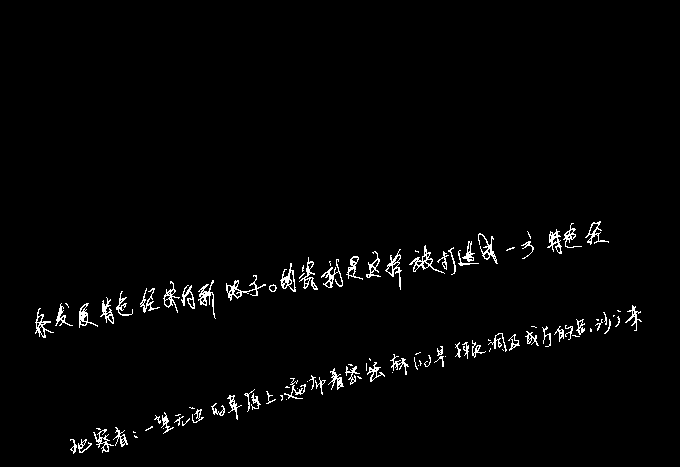 条发展特色经济的新路子。的资就是这样被打造成一方特色经
地察看:一望无边的草原上,遍布着密密麻麻的旱獭洞及成片的